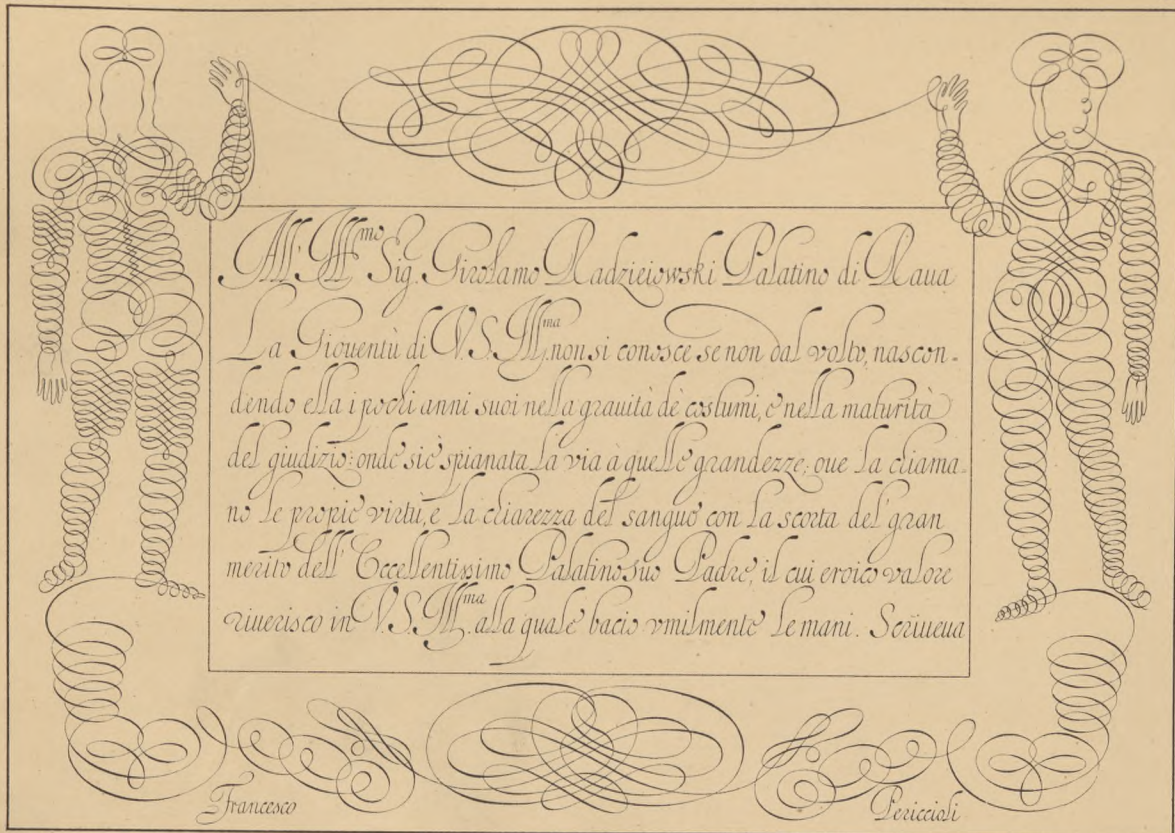 All' Ill.mo Sig. Girolamo Radzieiowski Palatino di Raua
La Giouentù di V.S. Ill.ma non si conosce se non dal volto, nascon-
dendo ella i pochi anni suoi nella grauità de costumi, e nella maturità
del giudizio: onde si è spianata la via à quelle grandezze, oue la chiama-
no le proprie virtù, e la chiarezza del sangue con la scorta del gran
merito dell' Eccellentissimo Palatino suo Padre, il cui eroico valore
riuerisco in V.S. Ill.ma alla quale bacio vmilmente le mani. Scriueua
Francesco Periccioli